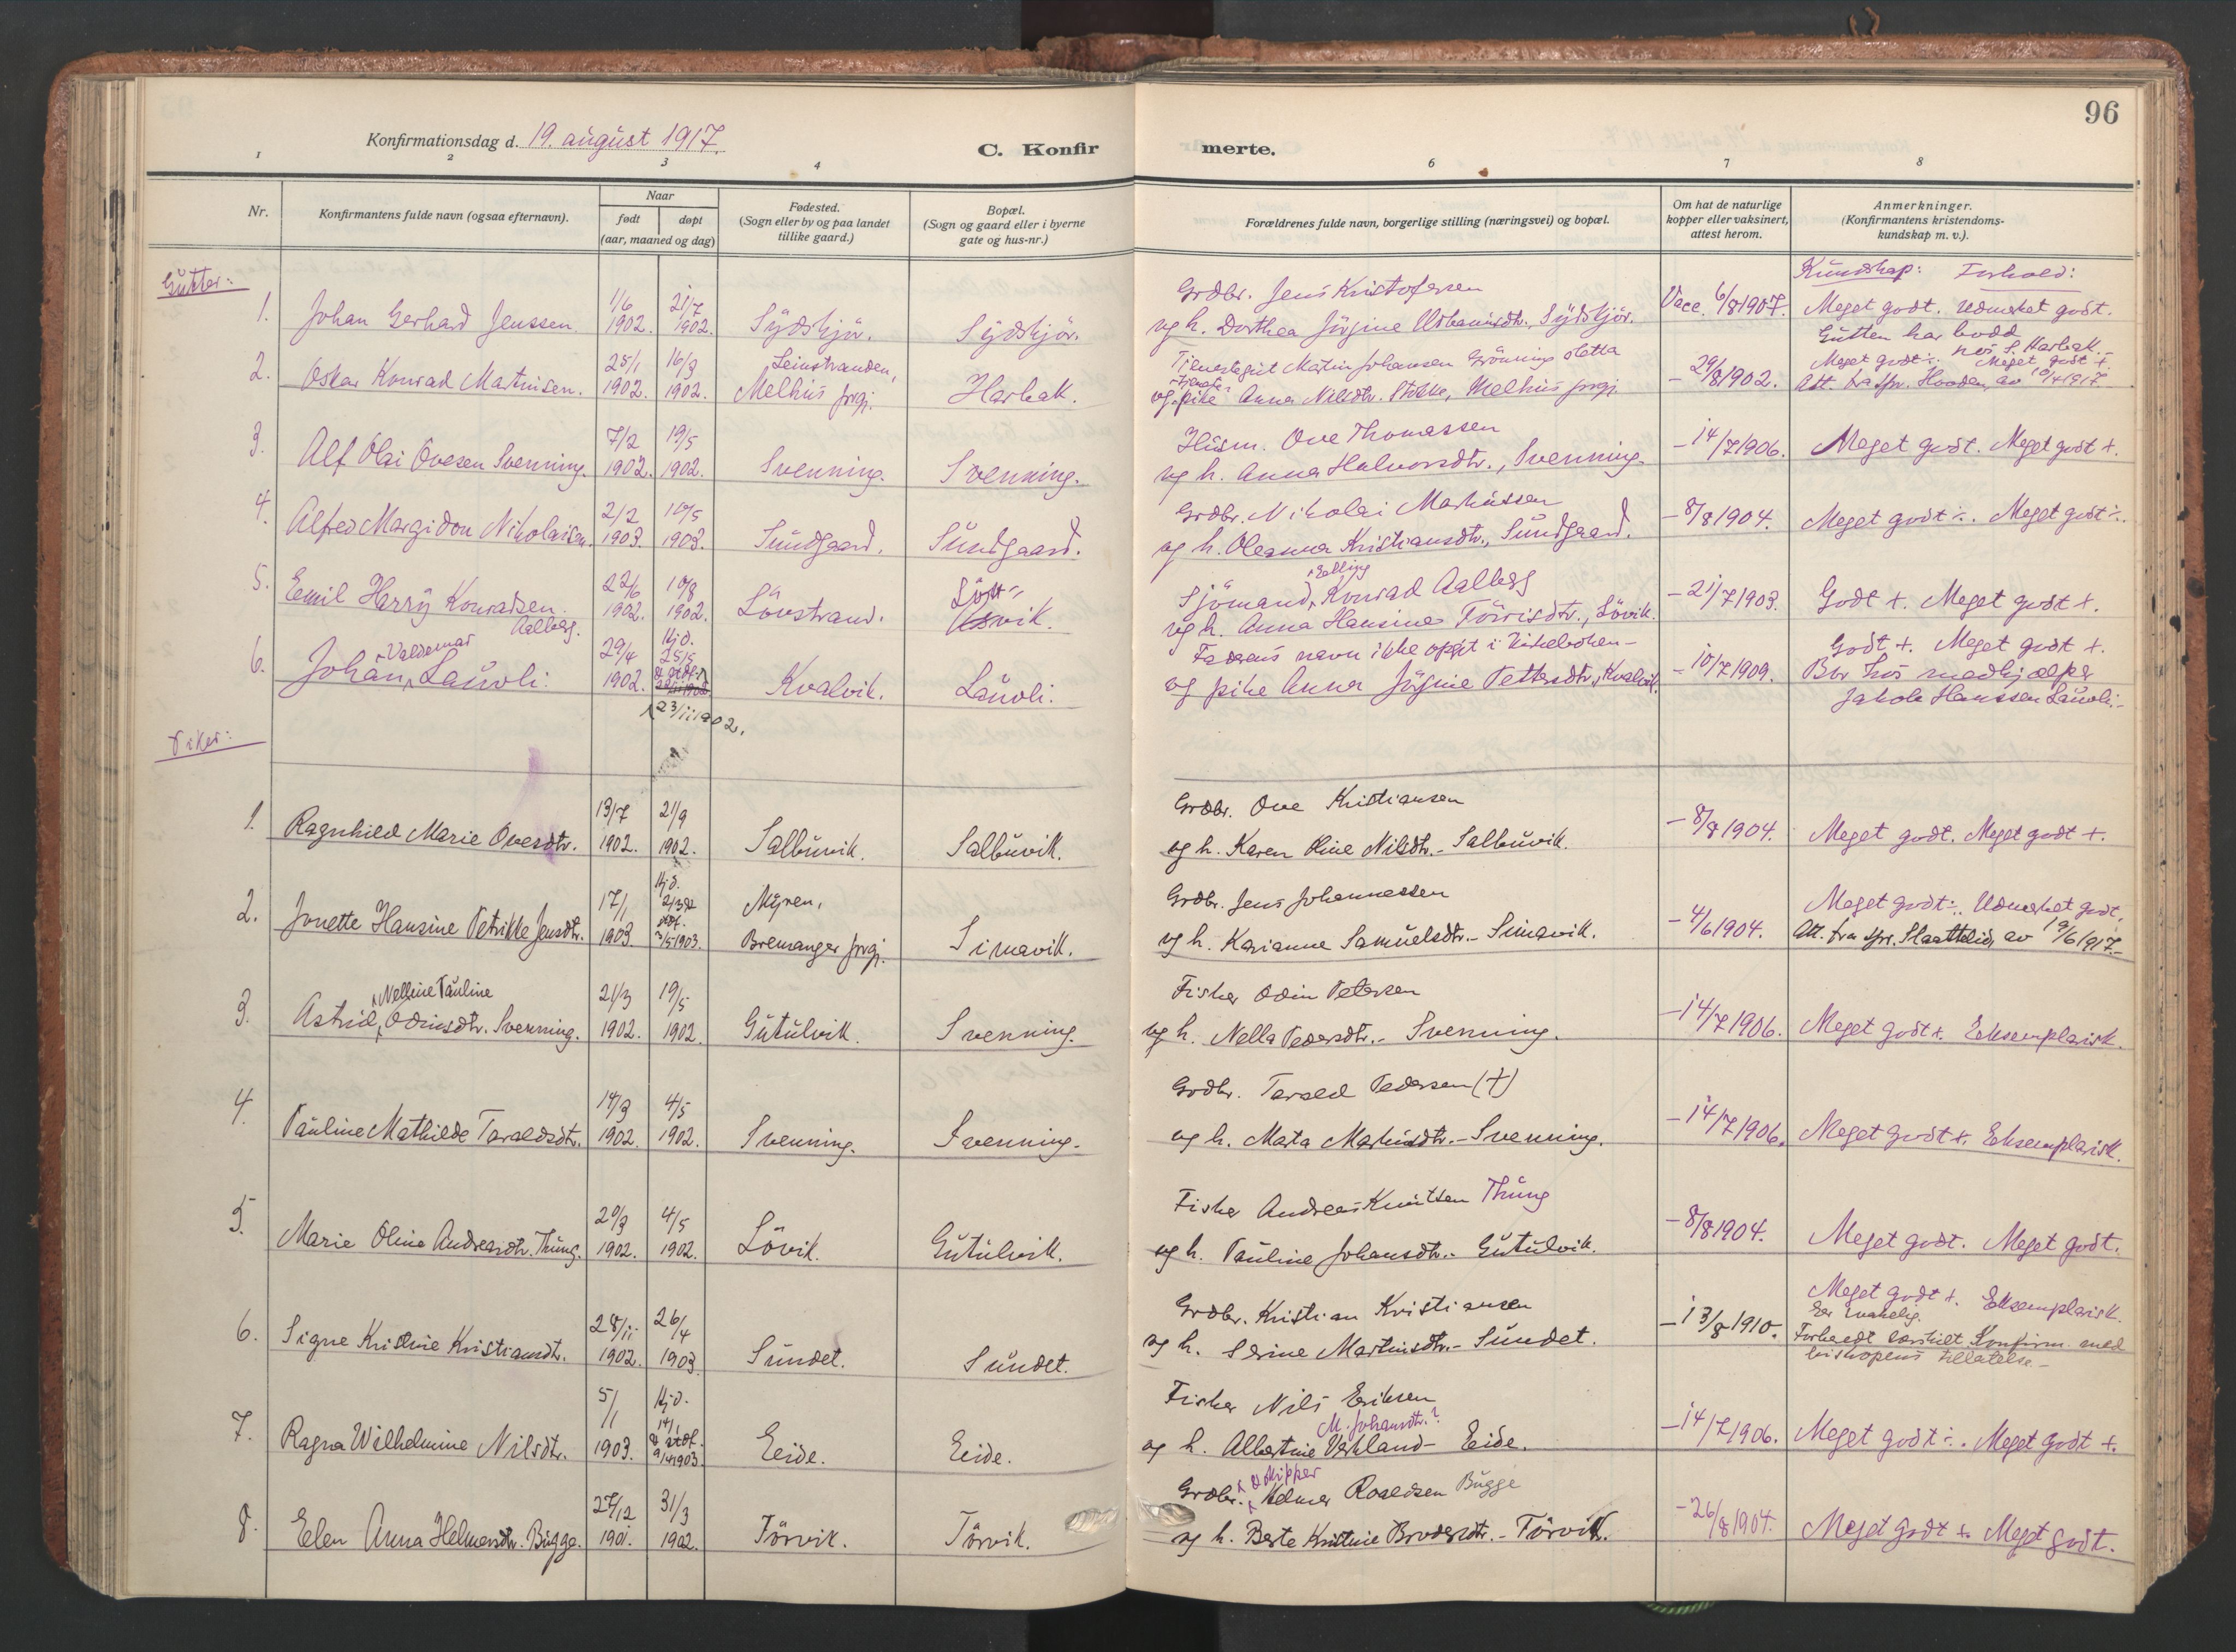 96
Konfirmationsdag d. 19. august 1917.
C. Konfirmerte.
1 2 3 4 6 7 8
Nr.
Konfirmantens fulde navn (ogsaa efternavn).
Naar
født
døpt
(aar, maaned og dag)
Fødested.
(Sogn eller by og paa landet
tillike gaard.)
Bopæl.
(Sogn og gaard eller i byerne
gate og hus-nr.)
Forældrenes fulde navn, borgerlige stilling (næringsvei) og bopæl.
Om hat de naturlige
kopper eller vaksinert,
attest herom.
Anmerkninger.
(Konfirmantens kristendoms-
kundskap m. v.).
Gutter:
Kundskap: Forhold:
1. Johan Gerhard Jenssen. 1/6 1902. 21/7 1902. Sydskjør. Sydskjør.
Grdbr. Jens Kristofersen
og h. Dorthea Jørgine Urbanisdtr., Sydskjör.
Vacc. 6/8 1907. Meget godt. Udmerket godt.
Gutten har bodd
hos S. Harbak.
2. Oskar Konrad Martinsen. 25/1 1902. 16/3 1902. Leinstranden, Melhus prgj. Harbak.
Tjenestegut Martin Johansen Grönningsletta
og pike Anna Nilsdtr. Stokke, Melhus prgj.
- 29/8 1902. Meget godt ÷. Meget godt +.
Att. fra spr. Hooden, av 10/4 1917
3. Alf Olai Ovesen Svenning. 7/2 1902. 19/5 1902. Svenning. Svenning.
Husm. Ove Thomassen
og h. Anna Halvorsdtr., Svenning.
- 14/7 1906. Meget godt. Meget godt +.
4. Alfred Margidon Nikolaisen. 2/2 1903. 10/5 1903. Sundgaard. Sundgaard.
Grdbr. Nikolai Markussen
og h. Oleanna Kristiansdtr., Sundgaard.
- 8/8 1904. Meget godt ÷. Meget godt ÷.
5. Emil Harry Konradsen Aalberg. 22/6 1902. 10/8 1902. Lövstrand. Löv-vik.
Sjömand, Elling Konrad Aalberg
og h. Anna Hansine Torrisdtr., Lövik.
- 21/7 1903. Godt +. Meget godt +.
6. Johan Valdemar Lauvli. 29/4 1902. Hjd. 25/5 23/11 1902. Kvalvik. Lauvli.
Faderens navn ikke opgit i kirkeboken -
og pike Anna Jørgine Pettersdtr., Kvalvik.
- 10/7 1909. Godt +. Meget godt +.
Bor hos medhjælper
Jakob Hanssen Lauvli.-
Piker:
1. Ragnhild Marie Ovesdtr. 13/7 1902. 21/9 1902. Salbuvik. Salbuvik.
Grdbr. Ove Kristiansen
og h. Karen Oline Nilsdtr.- Salbuvik.
- 8/8 1904. Meget godt. Meget godt +.
2. Jonette Hansine Petrikke Jensdtr. 17/1 1903. Hjd. 3/5 1903. Myren, Bremanger prgj. Simavik.
Grdbr. Jens Johannessen
og h. Karianne Samuelsdtr.- Simavik.
- 4/6 1904. Meget godt ÷. Udmerket godt.
Att. fra spr. Slaattelid, av 19/6 1917.-
3. Astrid Nelline Pauline Odinsdtr. Svenning. 21/3 1902. 19/5 1902. Gutulvik. Svenning.
Fisker Odin Petersen
og h. Nella Pedersdtr.- Svenning.
- 14/7 1906. Meget godt +. Eksemplarisk.
4. Pauline Mathilde Taraldsdtr. 14/3 1902. 4/5 1902. Svenning. Svenning.
Grdbr. Tarald Pedersen (†)
og h. Marta Markusdtr.- Svenning.
- 14/7 1906. Meget godt +. Eksemplarisk.
5. Marie Oline Andreasdtr. Thung. 20/3 1902. 4/5 1902. Lövik. Gutulvik.
Fisker Andreas Knutsen Thung
og h. Pauline Johansdtr.- Gutulvik.
- 8/8 1904. Meget godt. Meget godt.
6. Signe Kristine Kristiansdtr. 28/11 1902. 26/4 1903. Sundet. Sundet.
Grdbr. Kristian Kristiansen
og h. Serine Martinsdtr.- Sundet.
- 13/8 1910. Meget godt +. Eksemplarisk.
Er svakelig.
Forberedt særskilt. Konfirm. med
biskopens tillatelse.-
7. Ragna Wilhelmine Nilsdtr. 5/1 1903. Hjd. 14/1 9/4 1903. Eide. Eide.
Fisker Nils Eriksen
og h. Albertine M. Johansdtr.? Verkland- Eide.
- 14/7 1906. Meget godt ÷. Meget godt +.
8. Elen Anna Helmersdtr. Bugge. 27/12 1901. 31/3 1902. Tørvik. Tørvik.
Grdbr. & skipper Helmer Roaldsen Bugge
og h. Berte Kristine Brodersdtr.- Tørvik.
- 26/8 1904. Meget godt +. Meget godt.